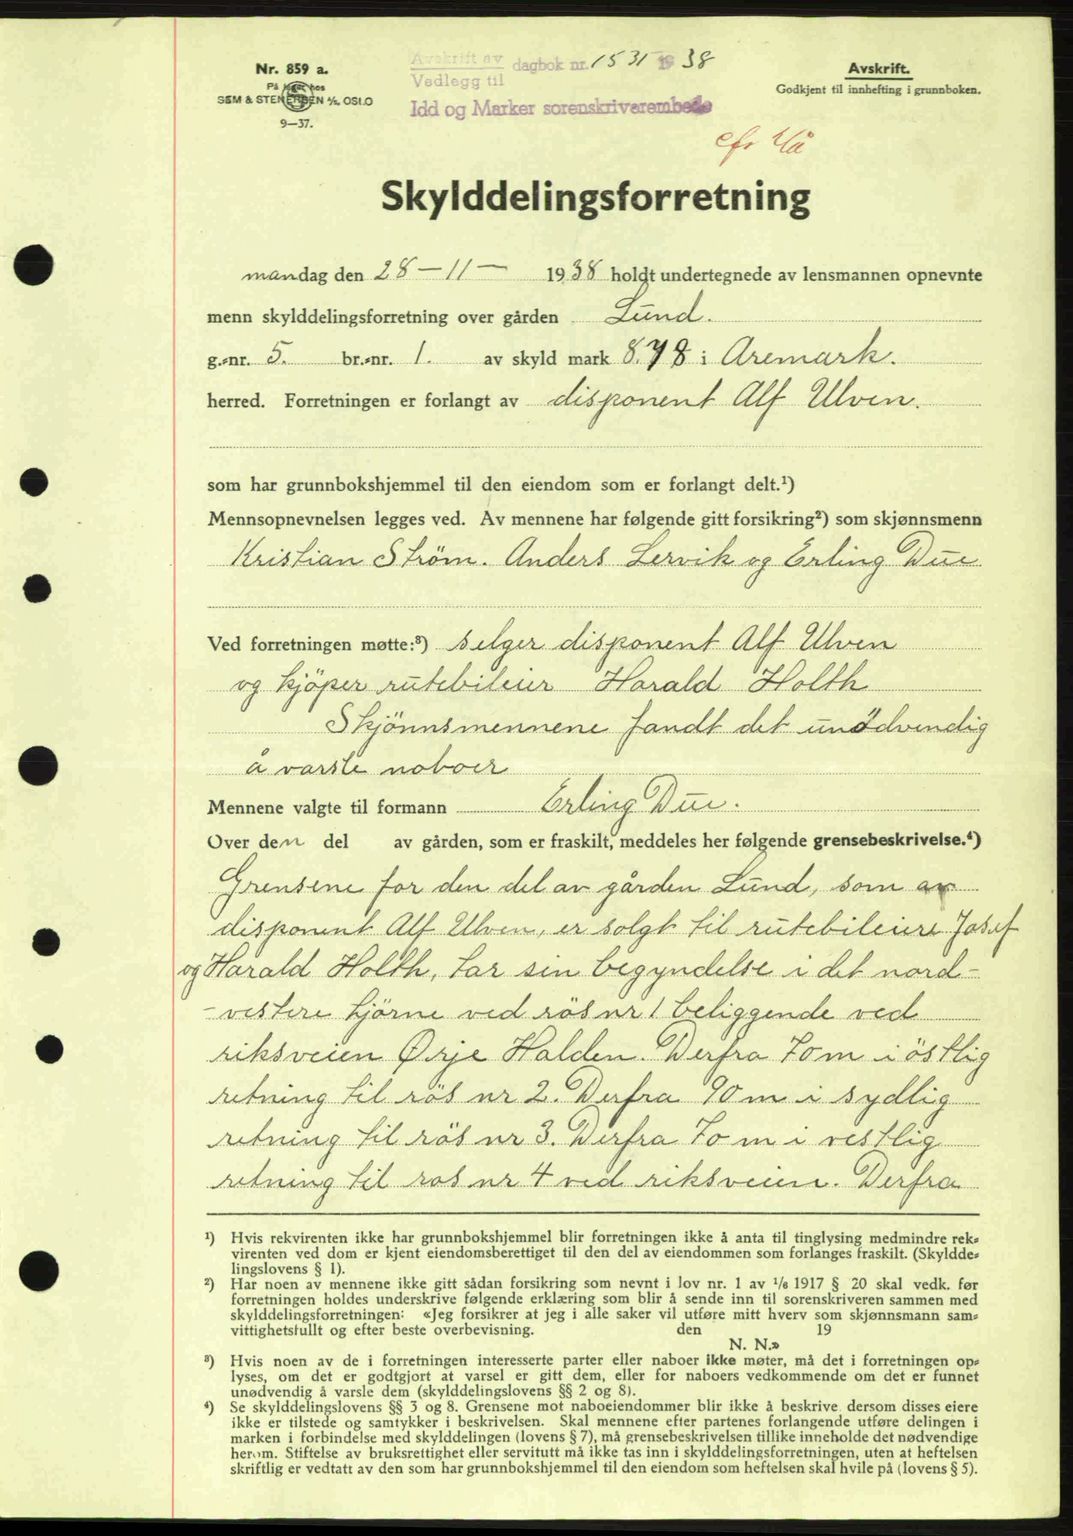 Nr. 859 a.
På lager hos
SEM & STENERSEN A/S, OSLO
9—37.
Avskrift av
Vedlegg til
dagbok nr. 1531 1938
Idd og Marker sorenskriverembede
Avskrift.
Godkjent til innhefting i grunnboken.
cfr
Skylddelingsforretning
mandag den 28 — 11 — 1938 holdt undertegnede av lensmannen opnevnte
menn skylddelingsforretning over gården Lund.
g.-nr. 5. br.-nr. 1. av skyld mark 8.78 i Aremark.
herred. Forretningen er forlangt av disponent Alf Ulven.
som har grunnbokshjemmel til den eiendom som er forlangt delt.¹)
Mennsopnevnelsen legges ved. Av mennene har følgende gitt forsikring²) som skjønnsmenn
Kristian Strøm. Anders Lervik og Erling Due
Ved forretningen møtte:³) selger disponent Alf Ulven
og kjöper rutebileier Harald Holth
Skjönnsmennene fandt det unödvendig
å varsle naboer
Mennene valgte til formann Erling Due.
Over den del av gården, som er fraskilt, meddeles her følgende grensebeskrivelse.⁴)
Grensene for den del av gården Lund, som av
disponent Alf Ulven, er solgt til rutebileiere Josef
og Harald Holth, tar sin begyndelse i det nord-
-vestere hjörne ved rös nr 1 beliggende ved
riksveien Ørje Halden. Derfra 70 m i östlig
retning til rös nr 2. Derfra 90 m i sydlig
retning til rös nr 3. Derfra 70 m i vestlig
retning til ros nr 4 ved riksveien. Derfra
¹) Hvis rekvirenten ikke har grunnbokshjemmel blir forretningen ikke å anta til tinglysing medmindre rek-
virenten ved dom er kjent eiendomsberettiget til den del av eiendommen som forlanges fraskilt. (Skyldde-
lingslovens § 1).
²) Har noen av mennene ikke gitt sådan forsikring som nevnt i lov nr. 1 av ¹/₆ 1917 § 20 skal vedk. før
forretningen holdes underskrive følgende erklæring som blir å sende inn til sorenskriveren sammen med
skylddelingsforretningen: «Jeg forsikrer at jeg i alle saker vil utføre mitt hverv som skjønnsmann sam-
vittighetsfullt og efter beste overbevisning. den 19
N. N.»
³) Hvis noen av de i forretningen interesserte parter eller naboer ikke møter, må det i forretningen op-
lyses, om det er godtgjort at varsel er gitt dem, eller for naboers vedkommende om det er funnet
unødvendig å varsle dem (skylddelingslovens §§ 2 og 8).
⁴) Se skylddelingslovens §§ 3 og 8. Grensene mot naboeiendommer blir ikke å beskrive dersom disses eiere
ikke er tilstede og samtykker i beskrivelsen. Skal mennene efter partenes forlangende utføre delingen i
marken i forbindelse med skylddelingen (lovens § 7), må grensebeskrivelsen tillike inneholde det nødvendige
herom. Stiftelse av bruksrettighet eller servitutt må ikke tas inn i skylddelingsforretningen, uten at heftelsen
skriftlig er vedtatt av den som har grunnbokshjemmel til den eiendom som heftelsen skal hvile på (lovens § 5).